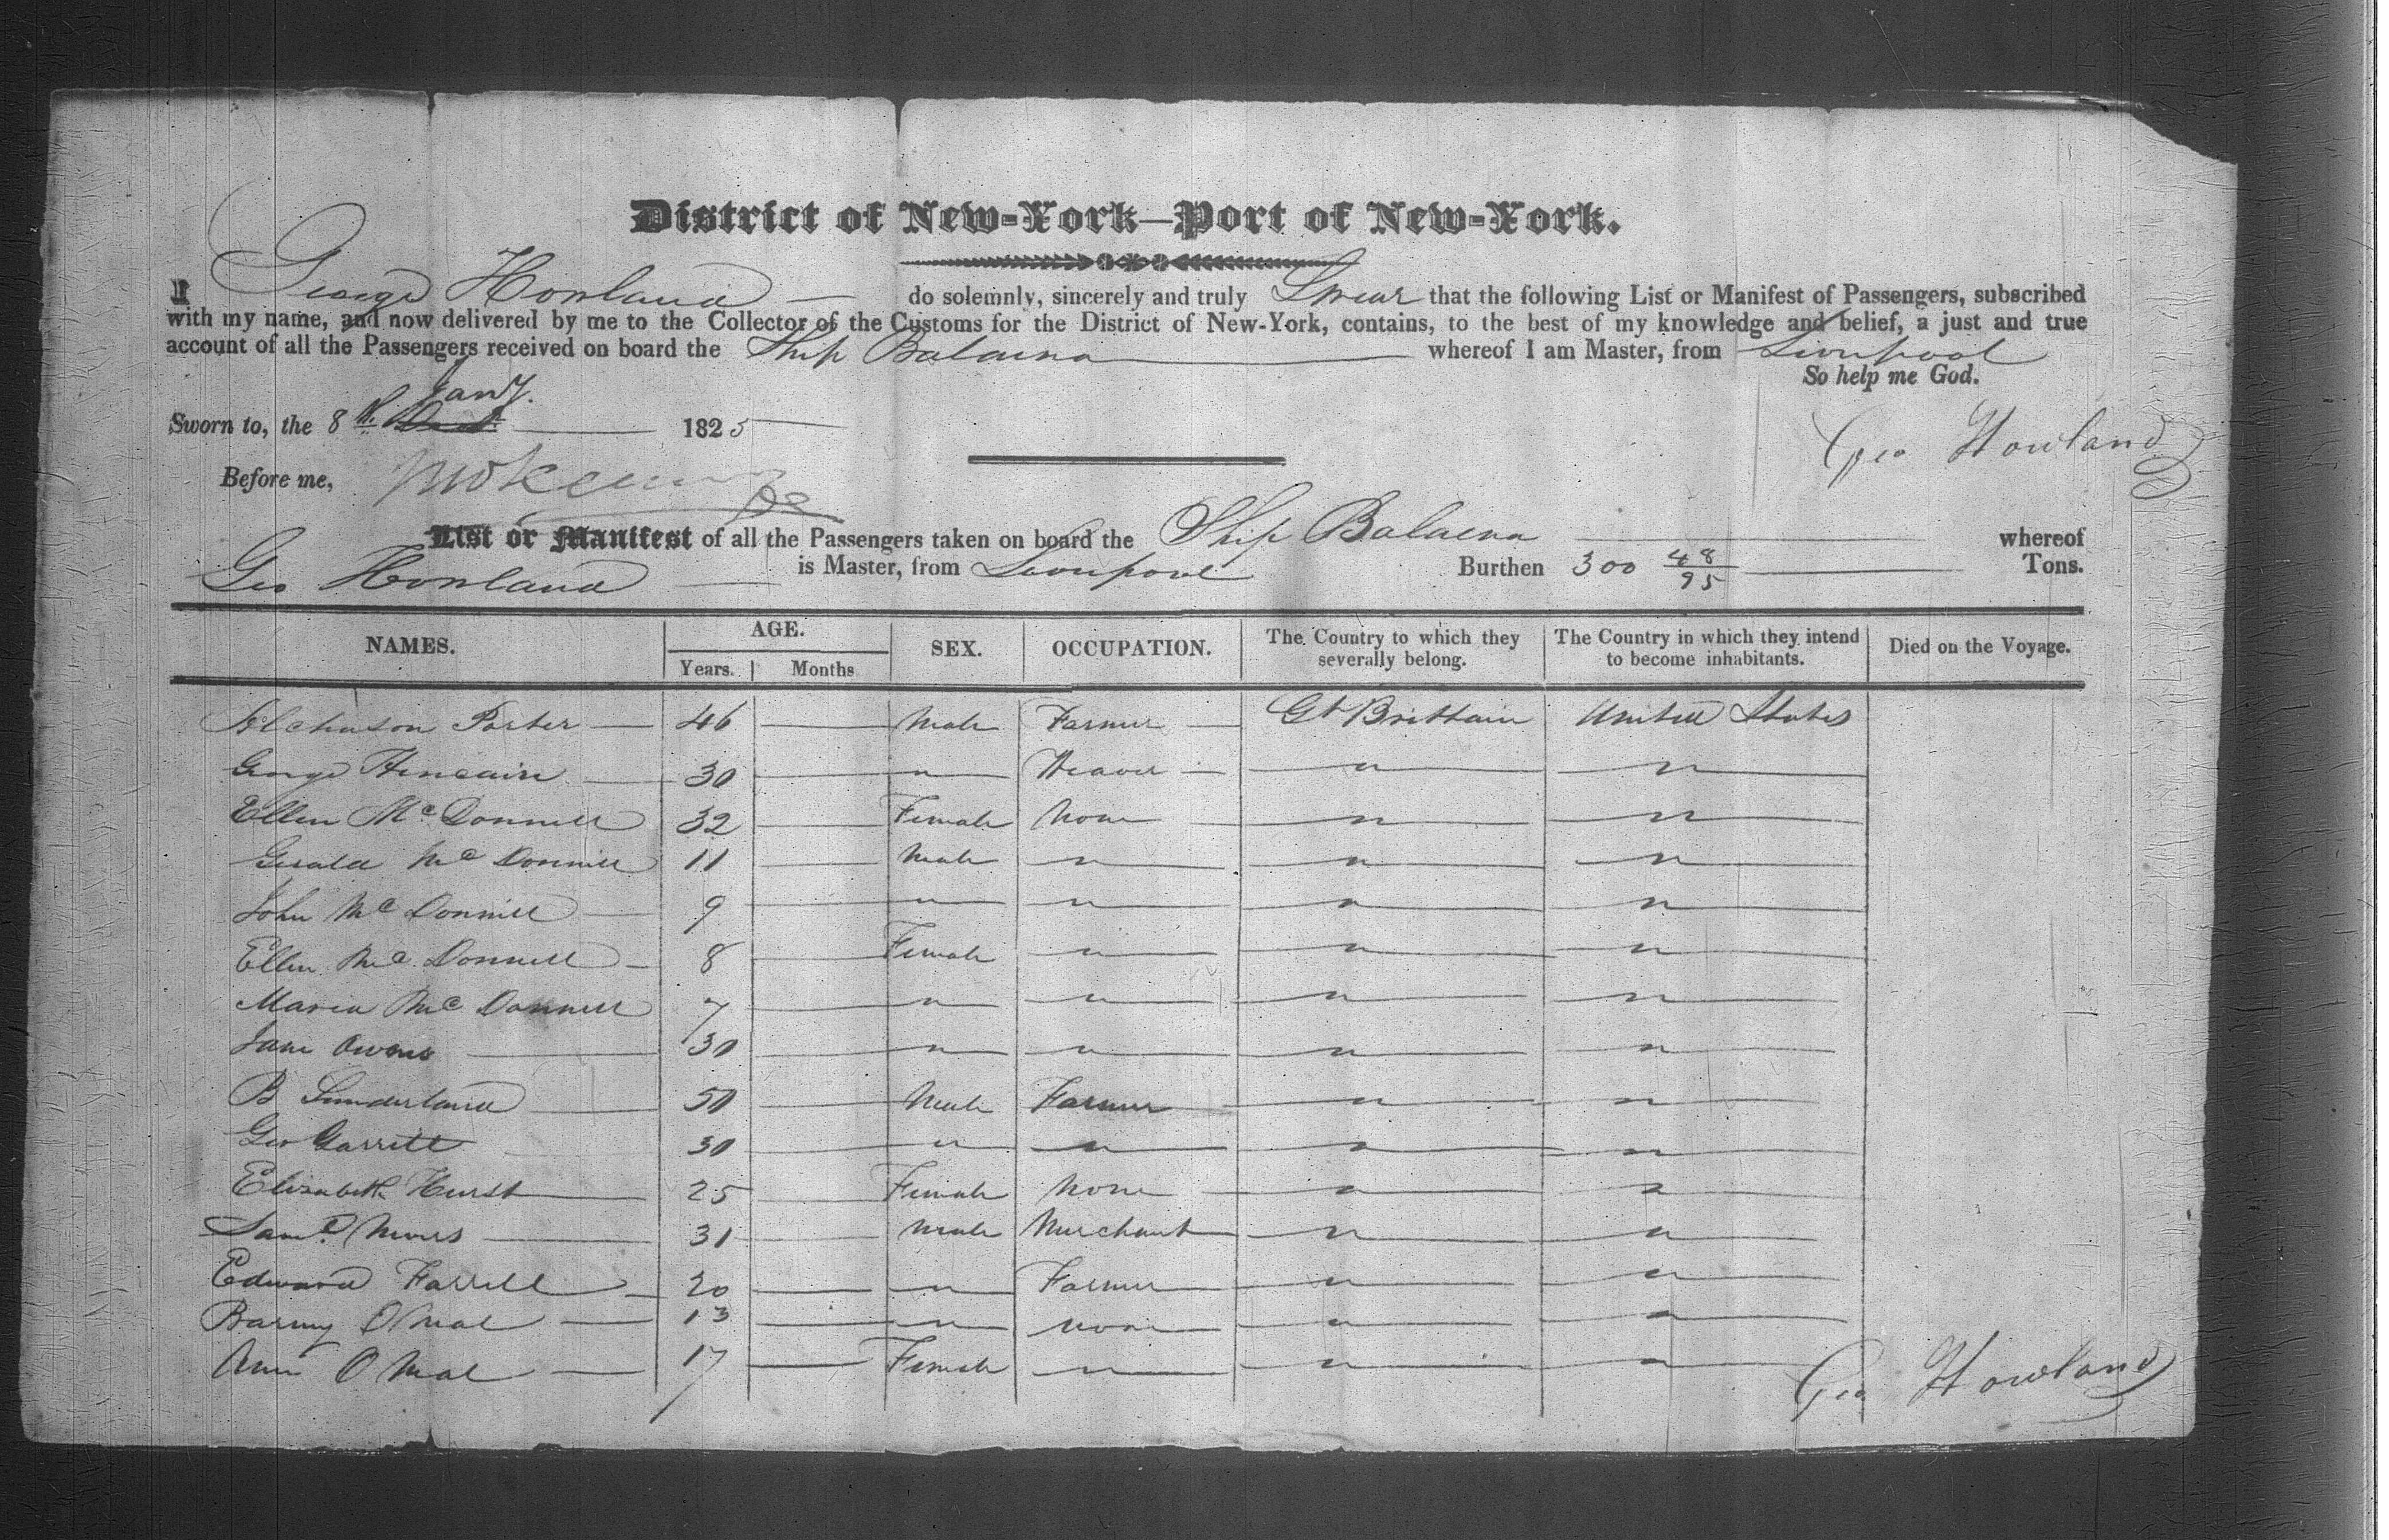 District of New-York—Port of New-York.
I George Howland — do solemnly, sincerely and truly Swear that the following List or Manifest of Passengers, subscribed
with my name, and now delivered by me to the Collector of the Customs for the District of New-York, contains, to the best of my knowledge and belief, a just and true
account of all the Passengers received on board the Ship Balaena whereof I am Master, from Liverpool
So help me God.
Jany.
Sworn to, the 8th 1825
Geo Howland
Before me,
List or Manifest of all the Passengers taken on board the Ship Balaena whereof
Geo Howland is Master, from Liverpool Burthen 300 48/95 Tons.
NAMES. AGE. SEX. OCCUPATION. The Country to which they severally belong. The Country in which they intend to become inhabitants. Died on the Voyage.
Years. Months
Porter — 46 — Male Farmer — Gt Brittain United States
George — 30 — " Weaver — " "
Ellen McDonnell 32 — Female None " "
Gerald McDonnell 11 — Male " " "
John McDonnell — 9 — " " " "
Ellen McDonnell — 8 — Female " " "
Maria McDonnell 7 — " " " "
Jane Owens — 30 — " " " "
B Sunderland — 50 — Male Farmer " "
Geo Garrett 30 — " " " "
Elizabeth Hurst — 25 — Female None " "
Saml — 31 — Male Merchant " "
Edward Farrell — 20 — " Farmer " "
Barny OMal — 13 — " None " "
Ann OMal — 17 — Female " " "
Geo Howland